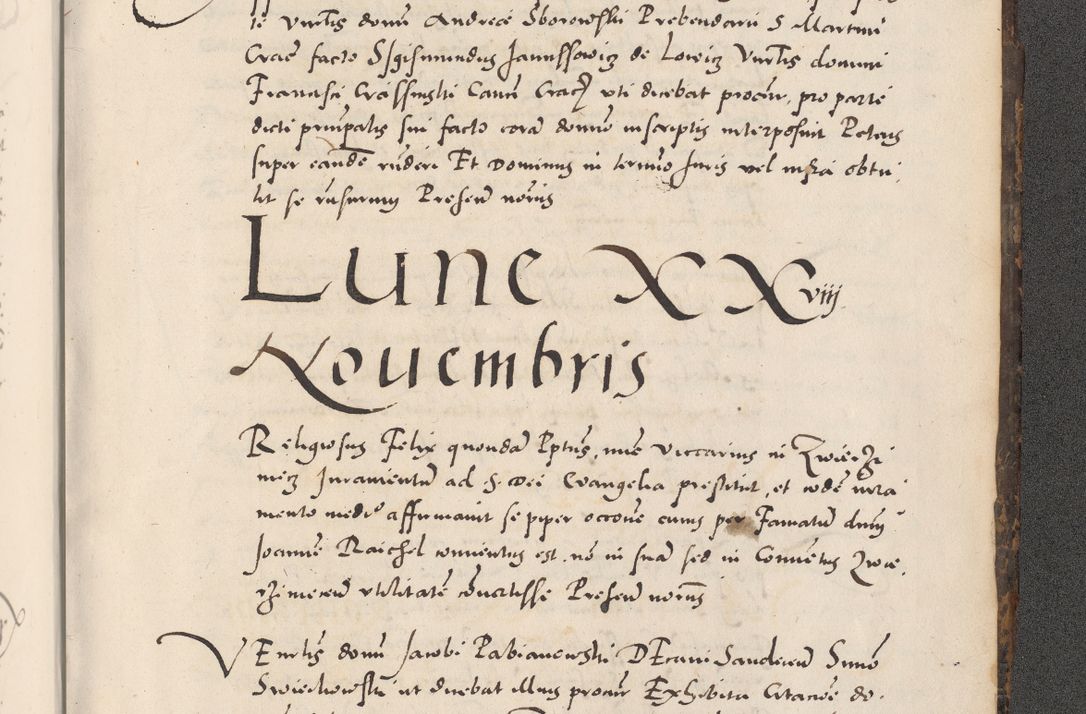 te Vnrtis domi Andreæ Sborowski Prebendarii S Martini
Crac facto Sigismundus Janussowicz de Lowicz Vnrtis domini
Francisci Crassinski Canci Crac uti dicebat procur, pro parte
dicti principalis sui facto cora domo inscriptis interposuit Petens
super eande rnderi Et Dominus in termino Juris vel infra obtu,
lit se rnsurum Presen noriis
Lune XXviij
Nouembris
Religiosus Felix quonda Pptus, nunc Viccarius in Zwierzi
niecz Juramentu ad S. Dei Evangelia prestitit, et eode iura
mento medio affirmavit se piper occone cuius per Famatu dnm
Joanne Raichel conventus est, no in sua sed in Conventus Zwie,
rzinecen utilitate covertisse Presen noriis
VEnrlis domi Jacobi Pabianowski DEcani Sandecen Simo
Swiechowski ut dicebat illius procur Exhibitu Citacoe do-